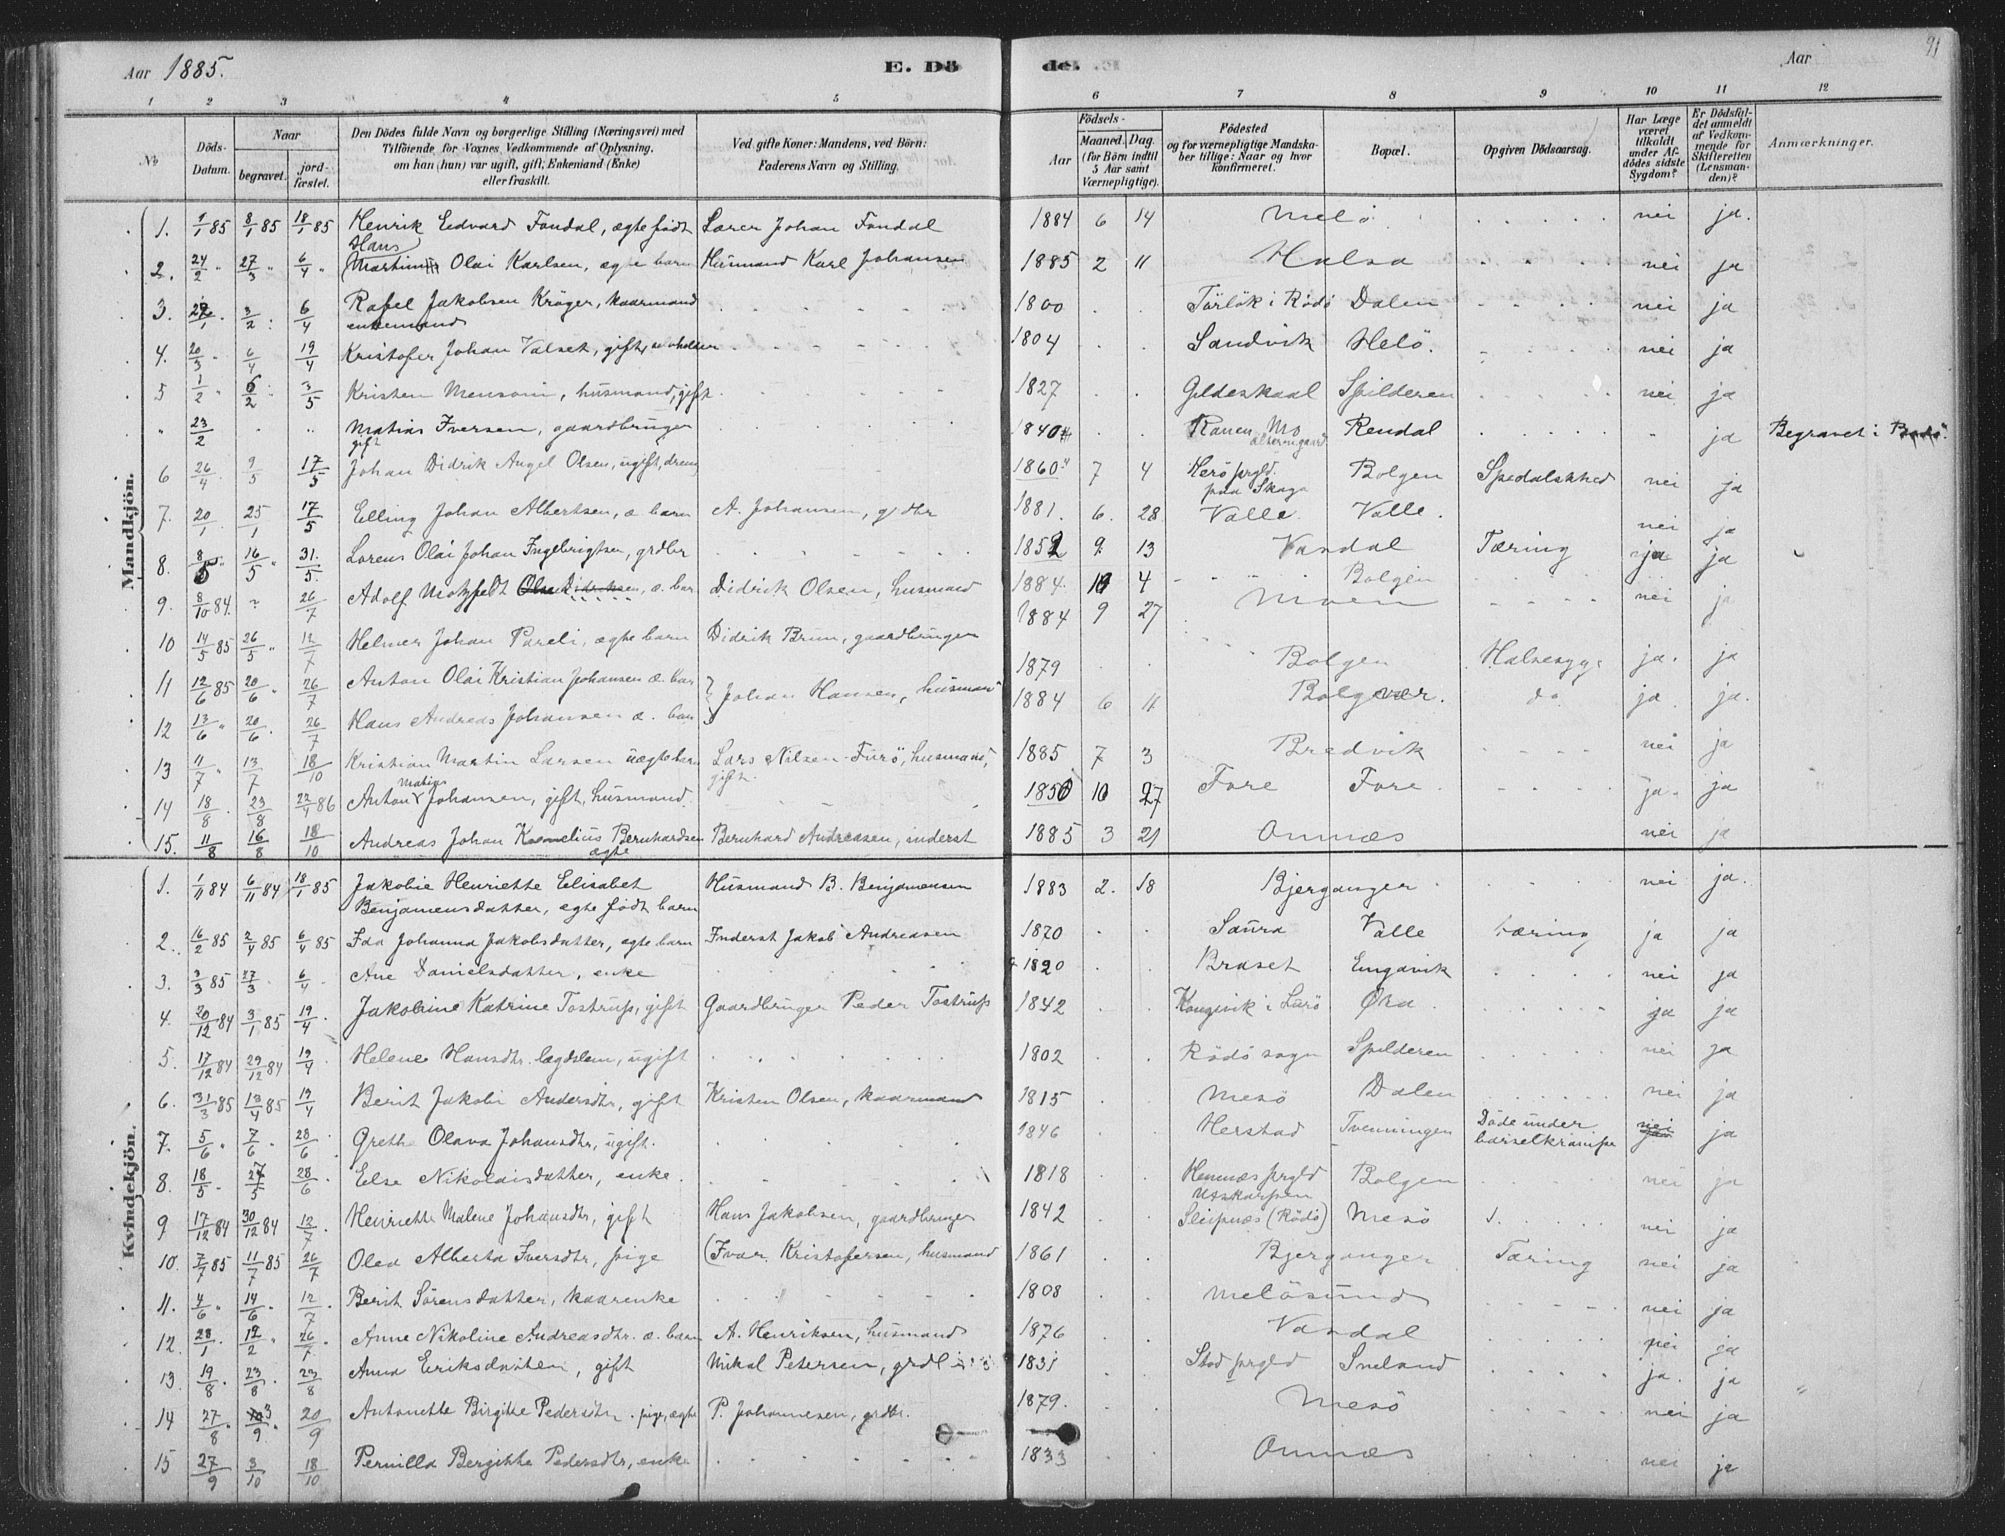 Aar 1885. E. Dö de. Aar 91
1 2 3 4 5 6 7 8 9 10 11 12
No
Döds-Datum.
Naar begravet. jordfæstet.
Den Dödes fulde Navn og borgerlige Stilling (Næringsvei) med Tilföiende for Voxnes Vedkommende af Oplysning, om han (hun) var ugift, gift, Enkemand (Enke) eller fraskilt.
Ved gifte Koner: Mandens, ved Börn: Faderens Navn og Stilling.
Födsels-
Aar Maaned. Dag. (for Börn indtil 5 Aar samt Værnepligtige).
Födested og for værnepligtige Mandskaber tillige: Naar og hvor konfirmeret.
Bopæl.
Opgiven Dödsaarsag.
Har Læge været tilkaldt under Afdödes sidste Sygdom?
Er Dödsfaldet anmeldt af Vedkommende for Skifteretten (Lensmanden)?
Anmærkninger.
Mandkjön.
1. 1/1 85 8/1 85 18/1 85 Henrik Edvard Fondal, ægte født Lærer Johan Fondal 1884 6 14 Melö nei ja.
2. 24/2 " 27/3 " 6/4 " Hans Martin Olai Karlsen, ægte barn Husmand Karl Johansen 1885 2 11 Halsa nei ja
3. 3/2 6/4 Rafel Jakobsen Kröger, kaarmand enkemand 1800 i Rödö Dalen nei ja
4. 20/3 " 6/4 19/4 Kristofer Johan Valset, gift, 1804 Sandvik Helö. nei ja
5 1/2 " 6/2 3/5 Kristen Mensoni, husmand, gift 1827 Gildeskaal Spilderen nei ja
" 23/2 " " Matias Iversen, gaardbruger gift 1840 Ranen Mo Rendal " ja Begravet i Bodö.
6 26/4 9/5 17/5 Johan Didrik Angel Olsen, ugift, dreng 1860 7 4 Herö prgld. paa Skaga Bolgen Spedalskhed nei ja
7. 20/1 25/1 17/5 Elling Johan Albertsen, æ. barn A. Johansen, grdbr 1881. 6. 28 Valle. Valle. nei ja
8. 8/5 " 16/5 31/5. Lorens Olai Johan Ingebrigtsen, grdbr 1852 9 13 Vasdal Tæring ja ja
9. 8/10 84. ? 26/7 Adolf Motzfeldt Didriksen, æ. barn Didrik Olsen, husmand 1884. 10 4 Bolgen nei ja
10 14/5 85 26/5 " 12/7 Helmer Johan Pareli, ægte barn Didrik Brun, gaardbruger 1884 9 27 Moen
11 12/6 85 20/6 " 26/7 Anton Olai Kristian Johansen æ. barn } Johan Hansen, husmand 1879 Bolgen Halsesyge ja. ja
12 13/6 " 20/6 . 26/7 Hans Andreas Johansen æ. barn 1884 6 11 Bolgvær. do ja. ja.
13 11/7 " 13/7 18/10 Kristian Martin Larsen uægte barn Lars Nilsen Furö, husmand, gift. 1885 7 3 Bredvik nei ja
14 18/8 . 23/8 22/4 86 Anton Matias Johansen, gift, husmand. 1850 10 27 Fore Fore. ja. ja
15. 11/8 16/8 18/10 Andreas Johan Kornelius Bernhardsen ægte Bernhard Andreasen, inderst 1885 3 21 Onnæs nei ja
Kvindekjön.
1. 1/11 84 6/11 84 18/1 85 Jakobie Henriette Elisabet Benjamensdatter, ægte født barn Husmand B. Benjamensen 1883 2. 18 Bjerganger nei ja.
2. 16/2 85 2/4 85 6/4 85 Ida Johanna Jakobsdatter, ægte barn Inderst Jakob Andreasen 1870 Saura Valle tæring ja ja
3. 3/3 85 27/3 . 6/4 . Ane Danielsdatter, enke 1820 Braset Engavik nei ja
4. 20/12 84 3/1 85 19/4 . Jakobine Katrine Tostrup, gift Gaardbruger Peder Tostrup 1842 Kongsvik i Lurö Øra. ja ja
5. 17/12 84 29/12 84 19/4 . Helene Hansdtr. lægdslem, ugift 1802 Rödö sogn Spilderen nei ja
6. 31/3 85 13/4 85 19/4 Berit Jakobi Andersdtr, gift Kristen Olsen, kaarmand 1815 Mesö Dalen nei ja
7. 5/6 " 7/6 " 28/6 Grethe Olava Johansdtr, ugift. 1846 Herstad Tvenningen Döde under barselkrampe nei ja
8. 18/5 . 27/5 28/6 . Else Nikolaisdatter, enke. 1818 Hemnæs prgld Utskarpen Bolgen nei ja
9 17/12 84 30/12 84 12/7 . Henriette Malene Johansdtr, gift Hans Jakobsen, gaardbruger 1842 Sleipnæs (Rödö) Mesö nei ja
10. 7/7 85 11/7 85 26/7 Olea Alberta Iversdtr, pige (Ivar Kristofersen, husmand 1861 Bjerganger Tæring nei ja
11. 4/6 " 14/6 " 12/7 . Berit Sörensdatter, kaarenke 1808 Melösund nei ja
12. 28/1 . 12/2 " 26/1 Anne Nikoline Andreasdtr. æ. barn A. Henriksen, husmand 1876 Vasdal nei ja
13. 19/8 . 23/8 . 23/8 Anna Eriksdatter, gift Mikal Petersen, 1831 Stod prgld Sneland ja. ja
14 27/8 . 3/9 . 20/9 Antonette Birgitte Pedersdtr. pige, ægte P. Johannesen, grdbr. 1879. Mesö nei ja
15 27/9 3/10 18/10 Pernilla Bergitte Pedersdtr, enke 1833 Onnæs nei ja